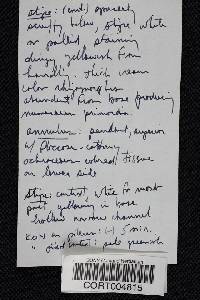 stipe: (cont.) apparently
scurfy below, stipe white
or pallid, staining
dingy yellowish from
handling. thick cream
color rhizomorphs
abundant from base producing
numerous primordia.
annulus: pendant, superior
w/ floccose-cottony
ochraceous colored tissue
on lower side
stipe: context, white in most
part yellowing in base
hollow narrow channel
KOH on pileus: (-) 5 min.
" : pale greenish
CORT004815